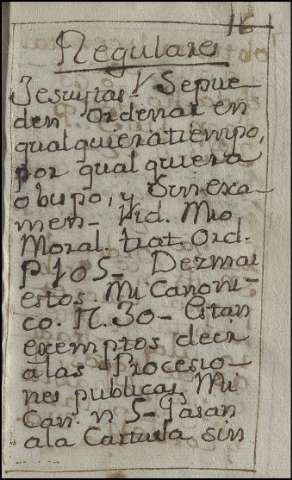 161
Regulares
Jesuytas. Sepue-
den Ordenar en
qualquiera tiempo,
por qualquiera
obispo, y Sin exa-
men- Vid. Mio
Moral. trat. Ord.
P 105- Dezmar
estos. Mi Canoni-
co. N. 30- Estan
exemptos de ir
a las Procesio-
nes publicas Mi
Can. n 5- Pasan
ala Cartuxa sin